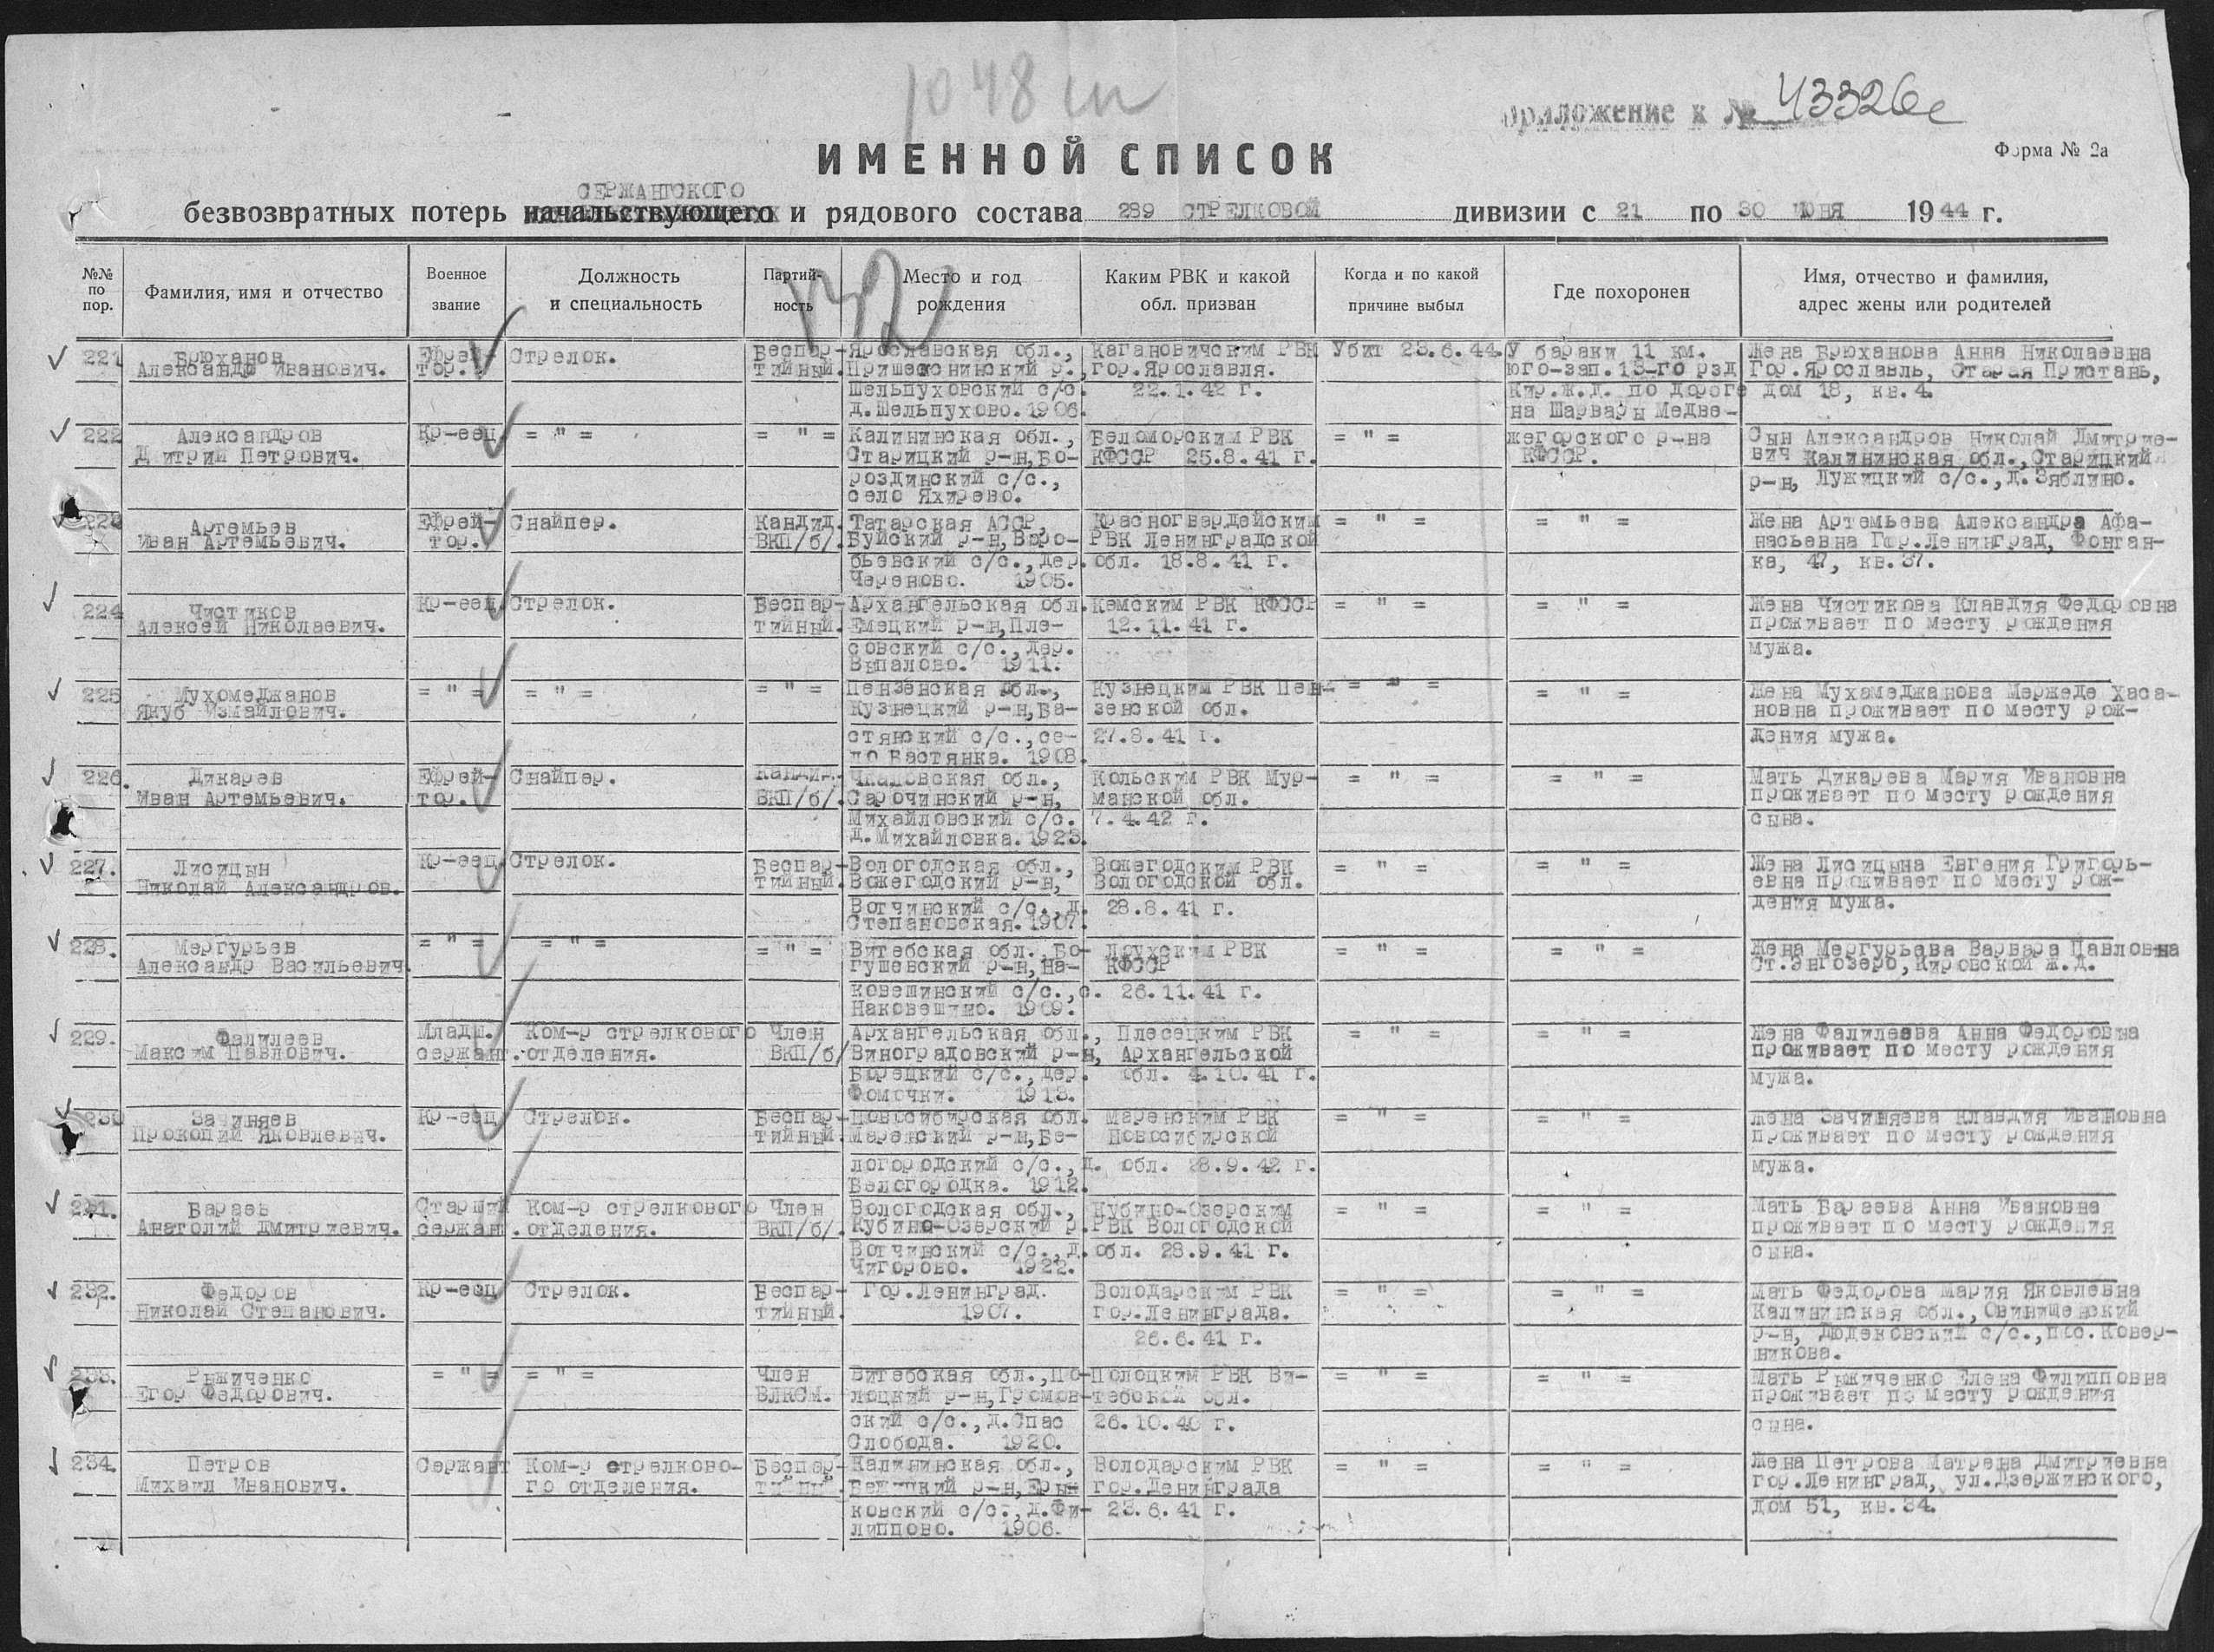 1048
Приложение к № 43326с
ИМЕННОЙ СПИСОК
Форма № 2а
СЕРЖАНТСКОГО
безвозвратных потерь начальствующего и рядового состава 289 СТРЕЛКОВОЙ дивизии с 21 по 30 ИЮНЯ 1944 г.
№№ по пор.
Фамилия, имя и отчество
Военное звание
Должность и специальность
Партийность
Место и год рождения
Каким РВК и какой обл. призван
Когда и по какой причине выбыл
Где похоронен
Имя, отчество и фамилия, адрес жены или родителей
221 Брюханов Ефрей- Стрелок. Беспар- Ярославская обл., Кагановичским РВК Убит 23.6.44. У бараки 11 км. Жена Брюханова Анна Николаевна
Александр Иванович. тор. тийный. Пришекснинский р., гор.Ярославля. юго-зап.13-го рзд Гор.Ярославль, Старая Пристань,
Шельпуховский с/с. 22.1.42 г. Кир.ж.д. по дороге дом 18, кв.4.
д.Шельпухово.1906. на Шарвары Медве-
222 Александров Кр-еец = " = = " = Калининская обл., Беломорским РВК = " = жегорского р-на Сын Александров Николай Дмитрие-
Дмитрий Петрович. Старицкий р-н,Бо- КФССР 25.8.41 г. КФССР. вич Калининская обл.,Старицкий
роздинский с/с., р-н, Лужицкий с/с.,д.Зяблино.
село Яхирево.
223 Артемьев Ефрей- Снайпер. Кандид. Татарская АССР, Красногвардейским = " = = " = Жена Артемьева Александра Афа-
Иван Артемьевич. тор. ВКП/б/. Буйский р-н,Воро- РВК Ленинградской насьевна Гор.Ленинград, Фонтан-
бьевский с/с.,дер. обл. 18.8.41 г. ка, 47, кв.37.
Череново. 1905.
224 Чистиков Кр-еец Стрелок. Беспар- Архангельская обл. Кемским РВК КФССР = " = = " = Жена Чистикова Клавдия Федоровна
Алексей Николаевич. тийный. Емецкий р-н,Пле- 12.11.41 г. проживает по месту рождения
совский с/с.,дер. мужа.
Выпалово. 1911.
225 Мухомеджанов = " = = " = = " = Пензенская обл., Кузнецким РВК Пен- = " = = " = Жена Мухамеджанова Мержеде Хаса-
Якуб Измайлович. Кузнецкий р-н,Ба- зенской обл. новна проживает по месту рож-
стянский с/с.,се- 27.8.41 г. дения мужа.
ло Бастянка. 1908.
226. Дикарев Ефрей- Снайпер. Кандид. Чкаловская обл., Кольским РВК Мур- = " = = " = Мать Дикарева Мария Ивановна
Иван Артемьевич. тор. ВКП/б/. Сарочинский р-н, манской обл. проживает по месту рождения
Михайловский с/с. 7.4.42 г. сына.
д.Михайловка.1923.
227. Лисицын Кр-еец Стрелок. Беспар- Вологодская обл., Вожегодским РВК = " = = " = Жена Лисицына Евгения Григорь-
Николай Александров. тийный. Вожегодский р-н, Вологодской обл. евна проживает по месту рож-
Вотчинский с/с.,д. 28.8.41 г. дения мужа.
Степановская.1907.
228. Мергурьев = " = = " = = " = Витебская обл.,Бо- Лоухским РВК = " = = " = Жена Мергурьева Варвара Павловна
Александр Васильевич. гушевский р-н,На- КФССР Ст.Энгозеро,Кировской ж.д.
ковешинский с/с.,с. 26.11.41 г.
Наковешино. 1909.
229. Фалилеев Младш. Ком-р стрелкового Член Архангельская обл., Плесецким РВК = " = = " = Жена Фалилеева Анна Федоровна
Максим Павлович. сержант. отделения. ВКП/б/ Виноградовский р-н, Архангельской проживает по месту рождения
Борецкий с/с.,дер. обл. 4.10.41 г. мужа.
Фомочки. 1913.
230 Зачиняев Кр-еец Стрелок. Беспар- Новосибирская обл. Маренским РВК = " = = " = Жена Зачиняева Клавдия Ивановна
Прокопий Яковлевич. тийный Маренский р-н,Бе- Новосибирской проживает по месту рождения
логородский с/с.,д. обл. 28.9.42 г. мужа.
Белогородка. 1912.
231. Бараев Старший Ком-р стрелкового Член Вологодская обл., Кубино-Озерским = " = = " = Мать Бараева Анна Ивановна
Анатолий Дмитриевич. сержант. отделения. ВКП/б/. Кубино-Озерский р. РВК Вологодской проживает по месту рождения
Вотчинский с/с.,д. обл. 28.9.41 г. сына.
Чигорово. 1922.
232. Федоров Кр-еец Стрелок. Беспар- Гор.Ленинград. Володарским РВК = " = = " = Мать Федорова Мария Яковлевна
Николай Степанович. тийный. 1907. гор.Ленинграда. Калининская обл.,Овинищенский
26.6.41 г. р-н, Дюдековский с/с.,пос.Ковер-
никова.
233. Рыжиченко = " = = " = Член Витебская обл.,По- Полоцким РВК Ви- = " = = " = Мать Рыжиченко Елена Филипповна
Егор Федорович. ВЛКСМ. лоцкий р-н,Громов- тебской обл. проживает по месту рождения
ский с/с.,д.Спас 26.10.40 г. сына.
Слобода. 1920.
234. Петров Сержант Ком-р стрелково- Беспар- Калининская обл., Володарским РВК = " = = " = Жена Петрова Матрена Дмитриевна
Михаил Иванович. го отделения. Бежицкий р-н,Еры- гор.Ленинграда гор.Ленинград, ул.Дзержинского,
ковский с/с.,д.Фи- 23.6.41 г. дом 51, кв.34.
липпово. 1906.